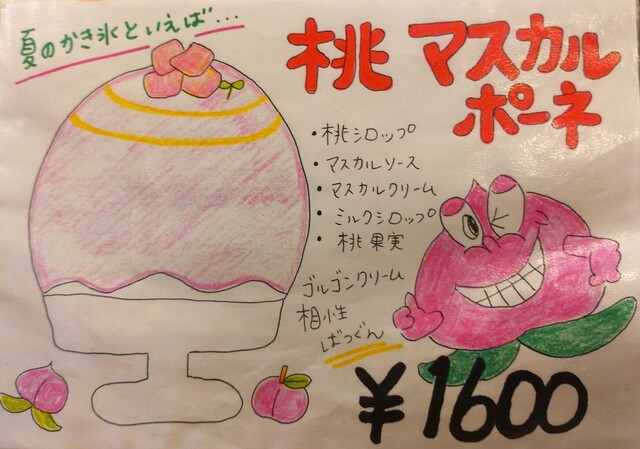 夏のかき氷といえば…
桃 マスカル
ポーネ
・桃シロップ
・マスカルソース
・マスカルクリーム
・ミルクシロップ
・桃果実
ゴルゴンクリーム
相性
ばつぐん
¥1600